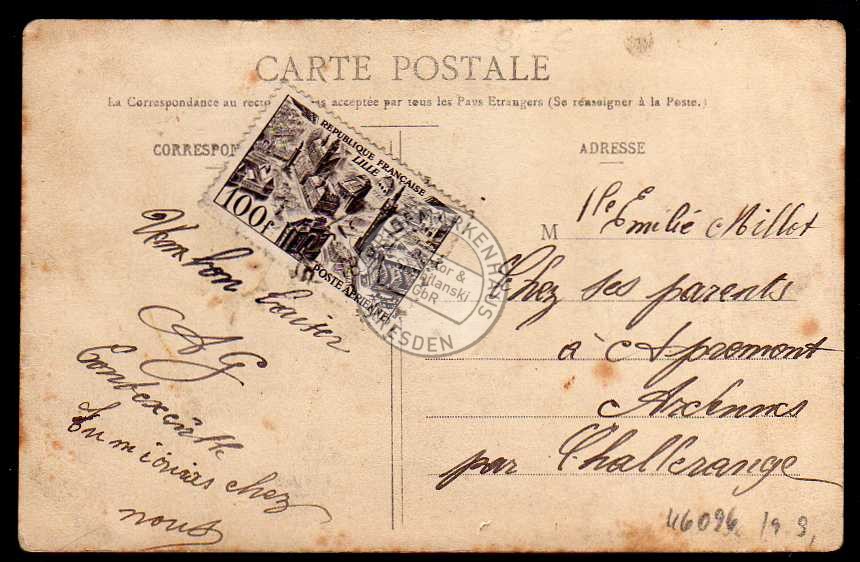 CARTE POSTALE
La Correspondance au recto acceptée par tous les Pays Etrangers (Se renseigner à la Poste.)
CORRESPON
ADRESSE
REPUBLIQUE FRANÇAISE
LILLE
100F
POSTE AERIENNE
BRIEFMARKENHAUS
DRESDEN
& 
GbR
Un bon baiser
AG
Contrexéville
Tu m'écriras chez
nous
M lle Emilie Millot
Chez ses parents
à Apremont
Ardennes
par Challerange
46096 19 9,